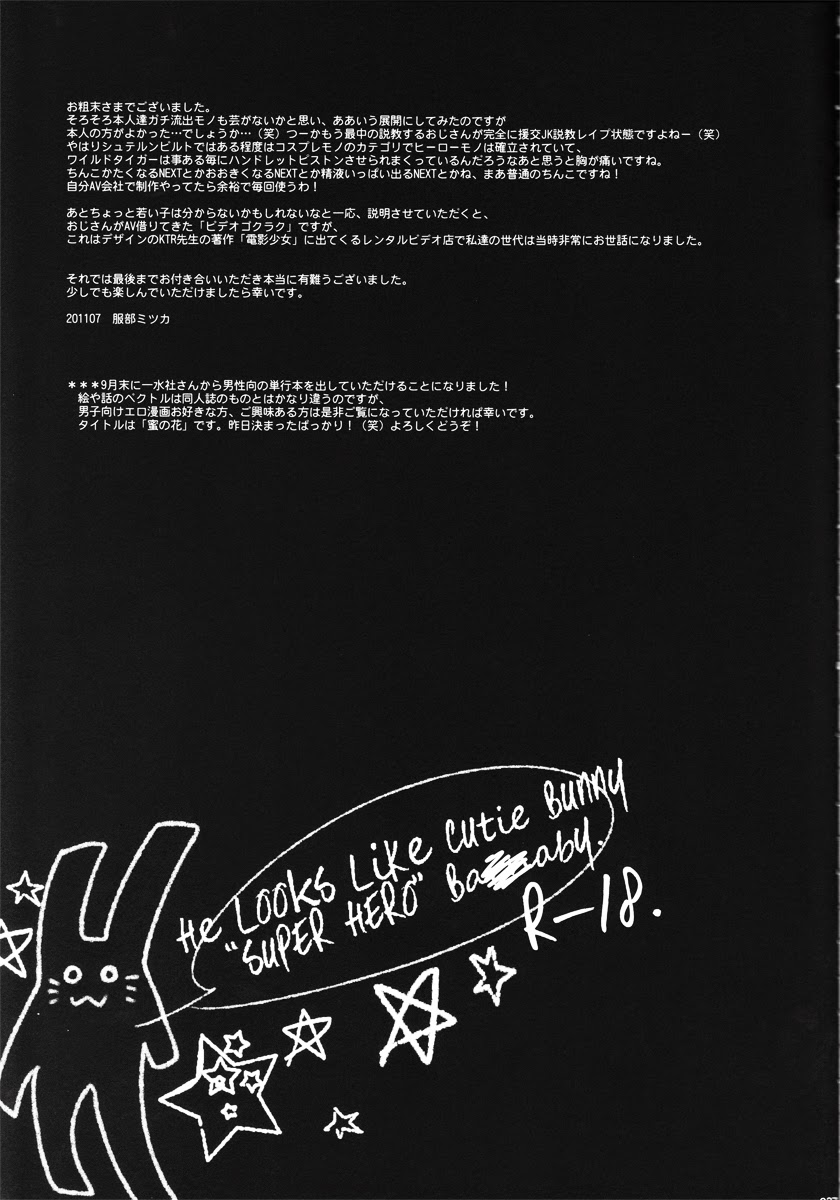 お粗末さまでございました。
そろそろ本人達ガチ流出モノも芸がないかと思い、ああいう展開にしてみたのですが
本人の方がよかった…でしょうか…（笑）つーかもう最中の説教するおじさんが完全に援交JK説教レイプ状態ですよねー（笑）
やはりシュテルンビルトではある程度はコスプレモノのカテゴリでヒーローモノは確立されていて、
ワイルドタイガーは事ある毎にハンドレットピストンさせられまくっているんだろうなあと思うと胸が痛いですね。
ちんこかたくなるNEXTとかおおきくなるNEXTとか精液いっぱい出るNEXTとかね、まあ普通のちんこですね！
自分AV会社で制作やってたら余裕で毎回使うわ！
あとちょっと若い子は分からないかもしれないなと一応、説明させていただくと、
おじさんがAV借りてきた「ビデオゴクラク」ですが、
これはデザインのKTR先生の著作「電影少女」に出てくるレンタルビデオ店で私達の世代は当時非常にお世話になりました。
それでは最後までお付き合いいただき本当に有難うございました。
少しでも楽しんでいただけましたら幸いです。
201107 服部ミツカ
＊＊＊9月末に一水社さんから男性向の単行本を出していただけることになりました！
絵や話のベクトルは同人誌のものとはかなり違うのですが、
男子向けエロ漫画お好きな方、ご興味ある方は是非ご覧になっていただければ幸いです。
タイトルは「蜜の花」です。昨日決まったばっかり！（笑）よろしくどうぞ！
He LOOKS LiKe CUtie BUNNY
"SUPER HERO" Ba aby.
R-18.